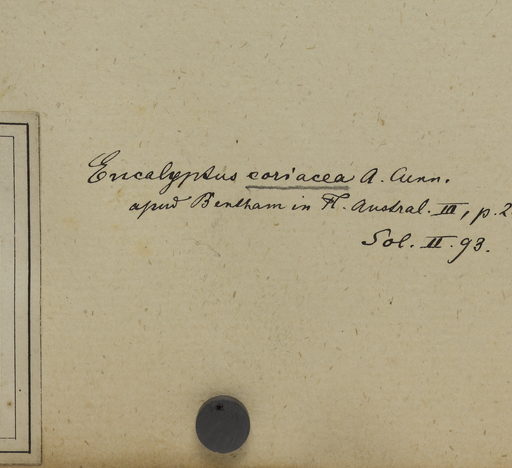 Eucalyptus coriacea A. Cunn.
apud Bentham in Fl. Austral. III, p. 2
Sol. II. 93.